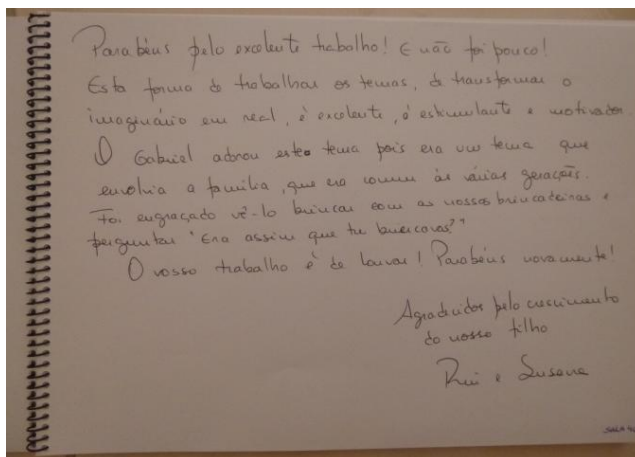 Parabéns pelo excelente trabalho! E não foi pouco!
Esta forma de trabalhar os temas, de transformar o
imaginário em real, é excelente, é estimulante e motivador.
O Gabriel adorou este tema pois era um tema que
envolvia a família, que era comum às várias gerações.
Foi engraçado vê-lo brincar com as nossas brincadeiras e
perguntar "Era assim que tu brincavas?"
O vosso trabalho é de louvar! Parabéns novamente!
Agradecidos pelo crescimento
do nosso filho
Rui e Susana
SALA